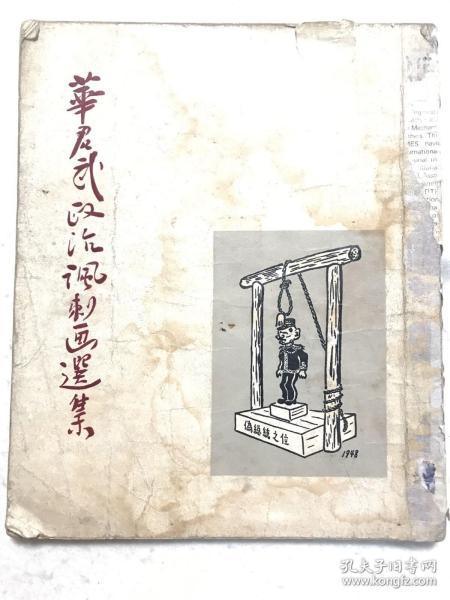 華君武政治諷刺画選集
偽總統之位
1948
Mechani
MES
ernationa
孔夫子旧书网
kongfz.com